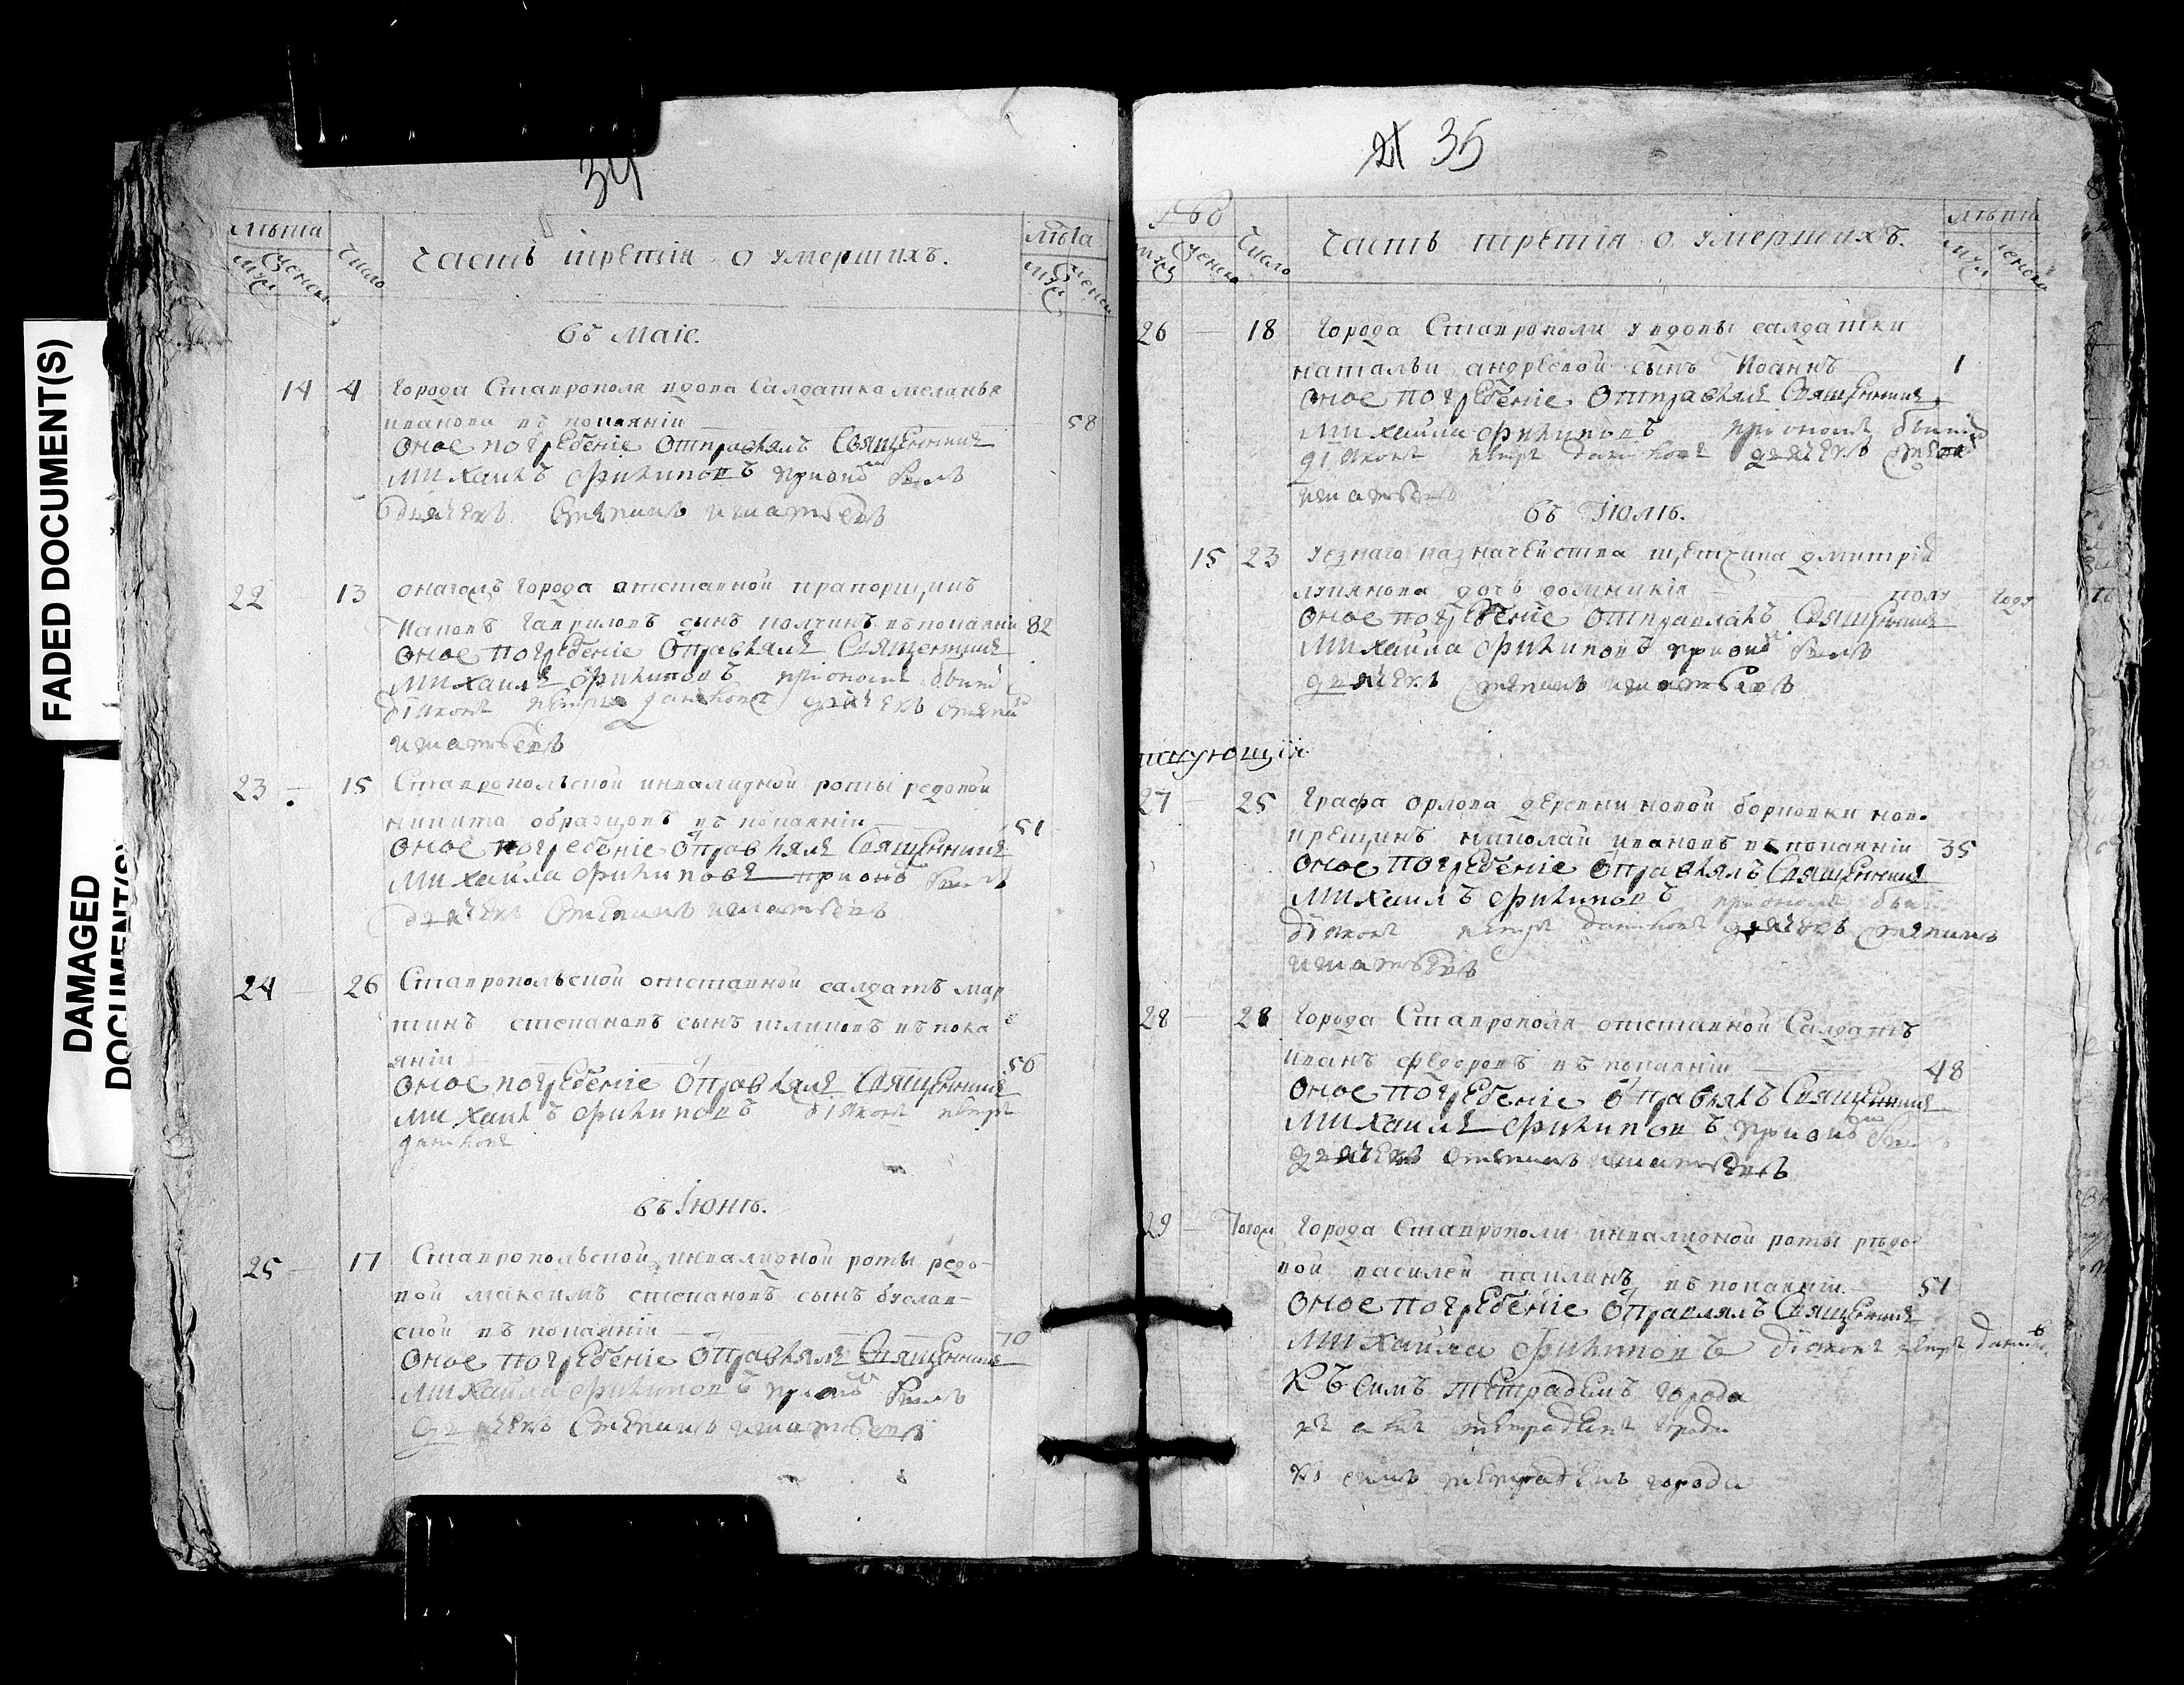 FADED DOCUMENT(S)
DAMAGED
DOCUMENT(S)
34
лѣта
муж женск число
Часть третія о умершихъ.
лѣта
муж женск
въ маіе.
14 4 города Ставрополя вдова Салдатка меланья
иванова въ покаяніи 58
оное погребеніе отправлялъ Священникъ
михаилъ филиповъ при ономъ былъ
дьячекъ Степанъ игнатьевъ
22 13 оногожъ города отставной прапорщикъ
гавриловъ сынъ въ покаяніи 82
оное погребеніе отправлялъ Священникъ
михаилъ филиповъ при ономъ были
діяконъ петръ данилов дьячекъ степанъ
игнатьевъ
23 15 Ставропольской инвалидной роты редовой
никита образцовъ въ покаяніи 51
оное погребеніе отправлялъ Священникъ
михайла филиповъ при ономъ былъ
дьячекъ Степанъ игнатьевъ
24 26 Ставропольской отставной салдатъ мар
тинъ степановъ сынъ въ пока
яніи 56
оное погребеніе отправлялъ Священникъ
михаилъ филиповъ діяконъ петръ
данилов
въ Іюнѣ.
25 17 Ставропольской инвалидной роты редо-
вой максимъ степановъ сынъ буслав-
ской въ покаяніи 70
оное погребеніе отправлялъ Священникъ
михайла филиповъ при ономъ былъ
дьячекъ Степанъ игнатьевъ
21 35
муж женск число
Часть третія о умершихъ.
лѣта
муж женск
26 18 города Ставрополи у вдовы салдатки
натальи андреевой сынъ Иоаннъ 1
оное погребеніе отправлялъ Священникъ
михайла филиповъ при ономъ были
діяконъ петръ данилов дьячекъ степанъ
игнатьевъ
въ Іюлѣ.
15 23 уезнаго казначейства щетчика дмитрія
лукянова дочь полу году
оное погребеніе отправлялъ Священникъ
михайла филиповъ при ономъ былъ
дьячекъ степанъ игнатьевъ
27 25 графа орлова деревни новой борковки нов.
крещинъ николай ивановъ въ покаяніи 35
оное погребеніе отправлялъ Священникъ
михаилъ филиповъ при ономъ были
діяконъ петръ данилов дьячекъ степанъ
игнатьевъ
28 28 города Ставрополя отставной Салдатъ
иванъ федоровъ въ покаяніи 48
оное погребеніе отправлялъ Священникъ
михаилъ филиповъ при ономъ былъ
дьячекъ степанъ игнатьевъ
29 города Ставрополи инвалидной роты рѣдо-
вой василей павлинъ въ покаяніи. 51
оное погребеніе отправлялъ Священникъ
михайла филиповъ діяконъ петръ данилов
Къ симъ тетрадемъ города
къ симъ тетрадемъ города
къ симъ тетрадемъ города